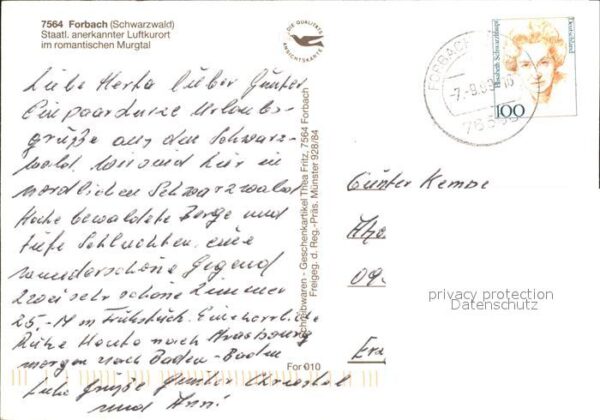 7564 Forbach (Schwarzwald)
Staatl. anerkannter Luftkurort
im romantischen Murgtal
DIE QUALITÄTS
ANSICHTSKARTE
FORBACH
-7.-9.
Elisabeth Schwarzhaupt
Deutschland
100
Liebe Herta lieber Günter
Ein paar kurze Urlaubs-
grüße aus dem Schwarz-
wald. wir sind hier im
nördlichen Schwarzwald
Hohe bewaldete Berge und
tiefe Schluchten, eine
wunderschöne Gegend
2 zwei sehr schöne Zimmer
25.- M m Frühstück. Eine herrliche
Ruhe Heute nach Strassburg
morgen nach Baden-Baden
Liebe Grüße Günter Christel
und Anni
Schreibwaren - Geschenkartikel Thea Fritz, 7564 Forbach
Freigeg. d. Reg.-Präs. Münster 928/84
For 010
Günter Kempe
privacy protection
Datenschutz